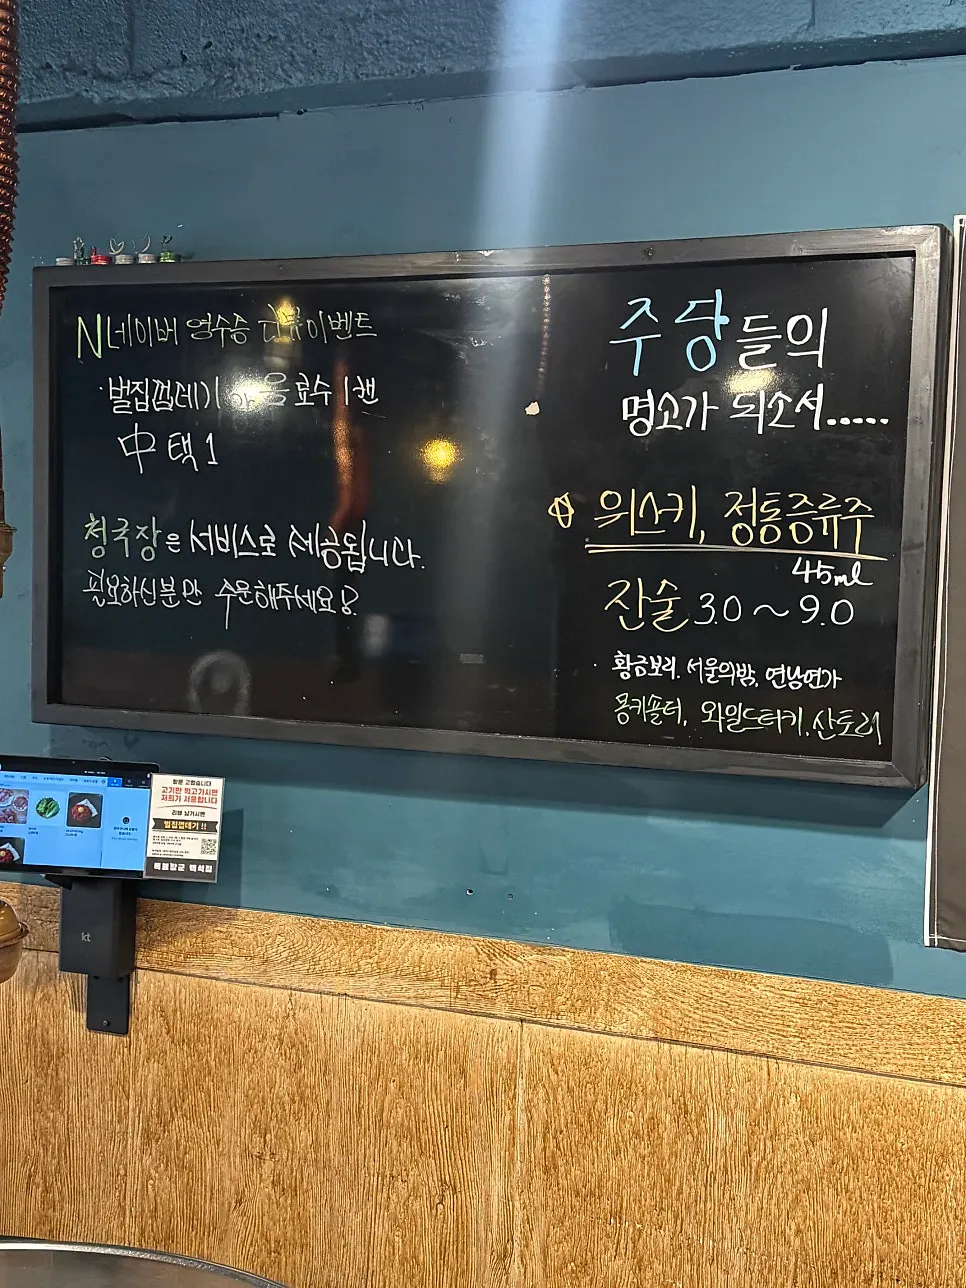 N네이버 영수증 이벤트
·벌집껍데기 음료수 1캔
中 택1
청국장은 서비스로 제공됩니다.
필요하신분만 주문해주세요!
주당들의
명소가 되소서.....
위스키, 정통증류주
45ml
잔술 3.0 ~ 9.0
· 황금보리. 서울의밤, 연남연가
몽키숄더, 와일드터키. 산토리
방문 고맙습니다
고기만 먹고가시면
저희가 서운합니다
리뷰 남기시면
벌집껍데기 !!
kt